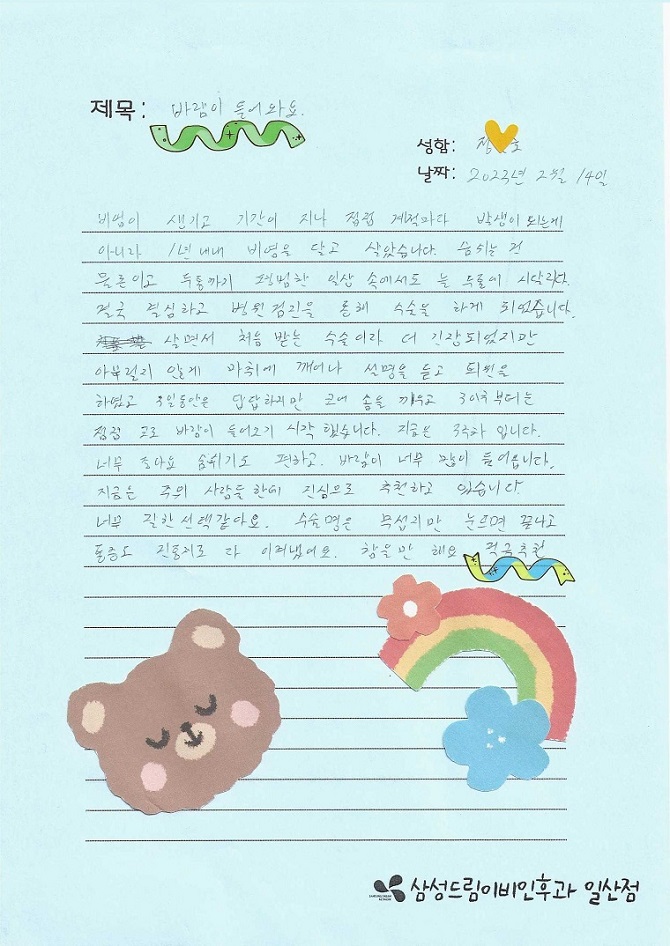 제목: 바람이 들어와요.
성함: 정 호
날짜: 2023년 2월 14일
비염이 생기고 기간이 지나 점점 계절마다 발생이 되는게
아니라 1년 내내 비염을 달고 살았습니다. 숨쉬는 건
물론이고 두통까지 평범한 일상 속에서도 늘 두통에 시달리다.
결국 결심하고 병원 검진을 통해 수술을 하게 되었습니다.
살면서 처음 받는 수술이라 더 긴장되었지만
아무렇지 않게 마취에 깨어나 설명을 듣고 퇴원을
하였고 3일동안은 답답하지만 코에 솜을 끼우고 3일부터는
점점 코로 바람이 들어오기 시작 했습니다. 지금은 3주차 입니다.
너무 좋아요 숨쉬기도 편하고. 바람이 너무 많이 들어옵니다.
지금은 주위 사람들한테 진심으로 추천하고 있습니다
너무 잘한 선택같아요. 수술명은 무섭지만 눈뜨면 끝나고
통증도 진통제로 다 이겨냈어요. 참을만 해요 적극추천
삼성드림이비인후과 일산점